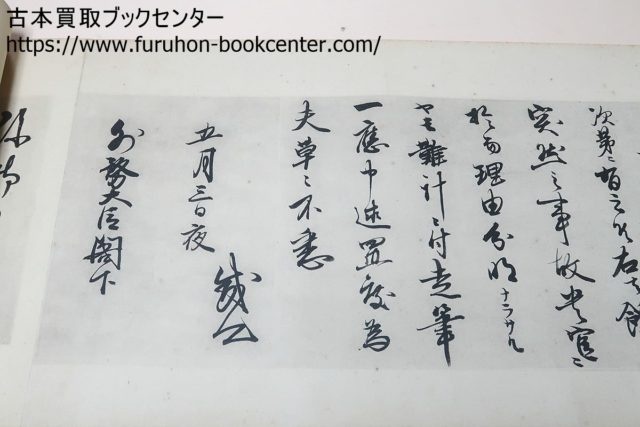 古本買取ブックセンター
https://www.furuhon-bookcenter.com/
次第ニ有之候右ハ
突然之事故貴官ニ
於 理由分明ナラサル
やも難計ニ付走筆
一應申述置度為
夫草々不悉
五月三日夜
外務大臣閣下